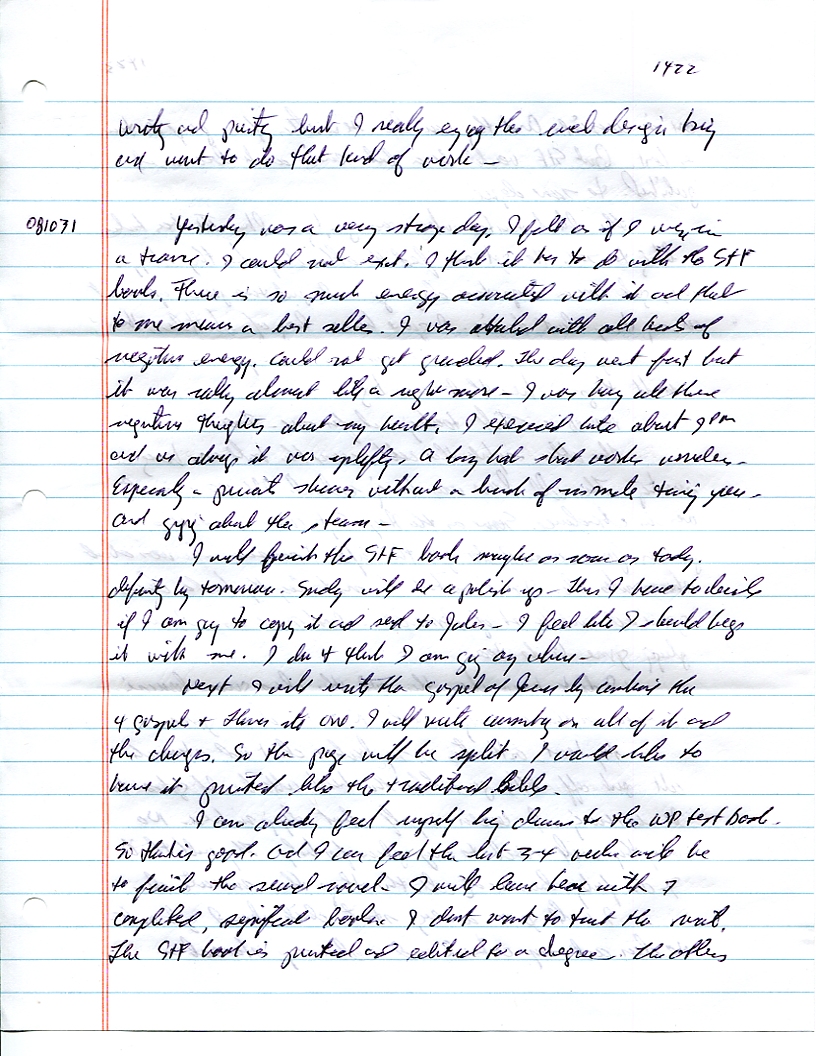 1422
writing and printing but I really enjoy this web design thing
and want to do that kind of work –
081031 Yesterday was a very strange day. I felt as if I were in
a trance. I could not exit. I think it has to do with the StF
book. There is so much energy associated with it and that
to me means a best seller. I was attacked with all kinds of
negative energy. Could not get grounded. The day went fast but
it was really almost like a nightmare – I was having all these
negative thoughts about my health. I exercised late about 9 PM
and as always it was uplifting. A long hot shower works wonders.
Especially a private shower without a bunch of inmates
and about the steam –
I will finish the StF book maybe as soon as today.
definitely by tomorrow. Sunday will be a polish up – Then I have to decide
if I am going to copy it and send to Jules – I feel like I should keep
it with me. I don't think I am going any where –
Next I will write the gospel of Jesus by combining the
4 gospels + Thomas into one. I will write commentary on all of it and
the changes. So the page will be split. I would like to
have it printed like the traditional bible.
I can already feel myself being drawn to the WP text book.
So that is good. And I can feel the last 3-4 weeks will be
to finish the second novel – I will leave here with 7
completed, significant books. I don't want to trust the mail.
The StF book is printed and edited to a degree. The others